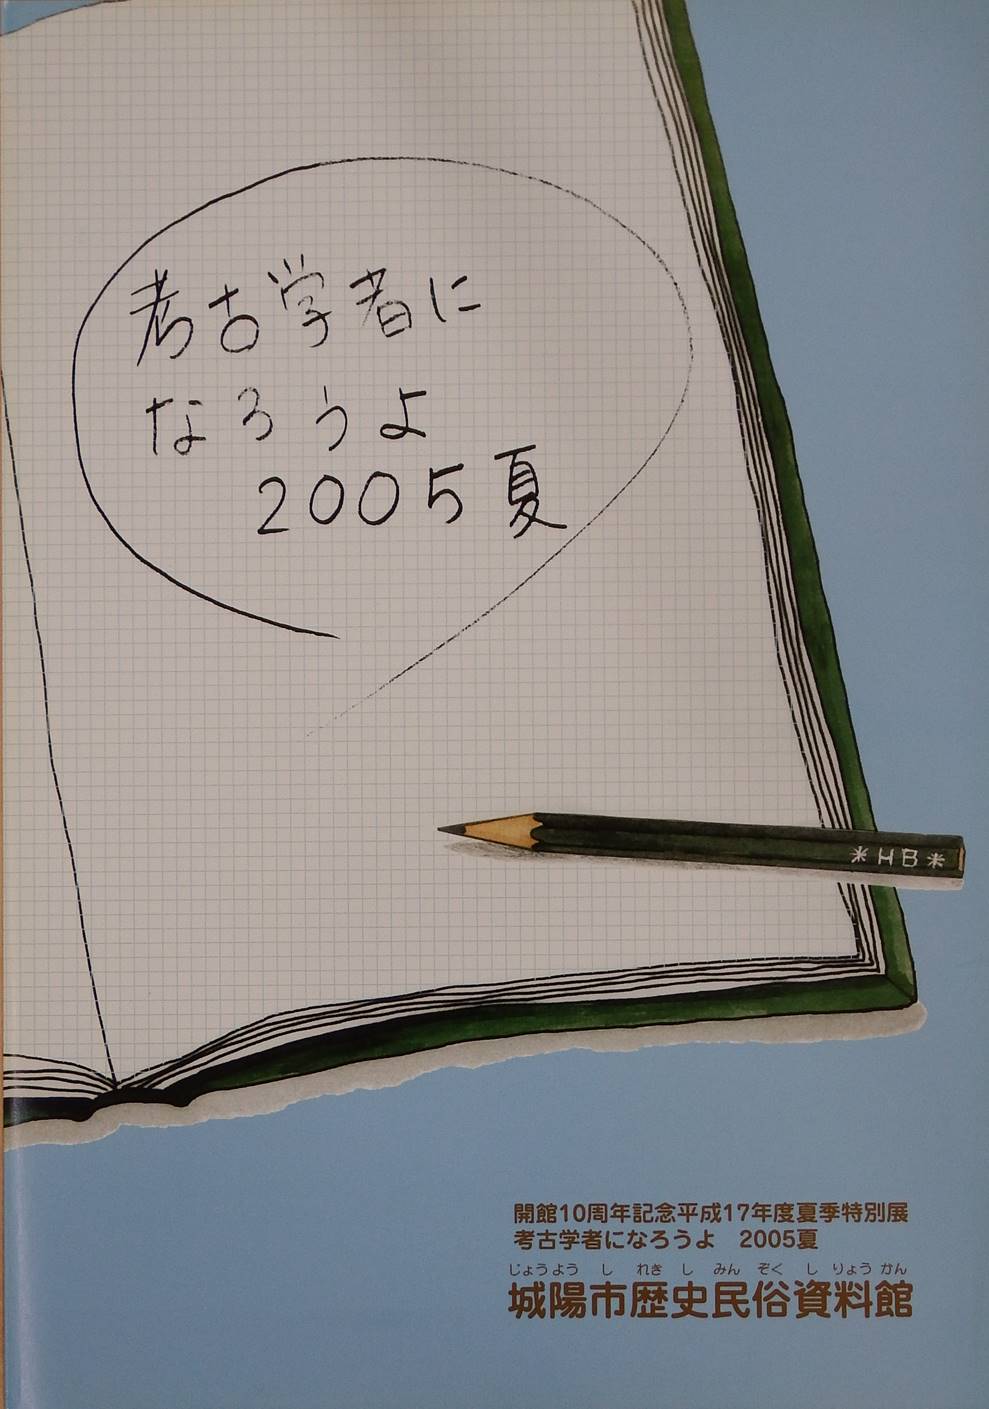 考古学者に
なろうよ
2005夏
*HB*
開館10周年記念平成17年度夏季特別展
考古学者になろうよ 2005夏
じょうようしれきしみんぞくしりょうかん
城陽市歴史民俗資料館